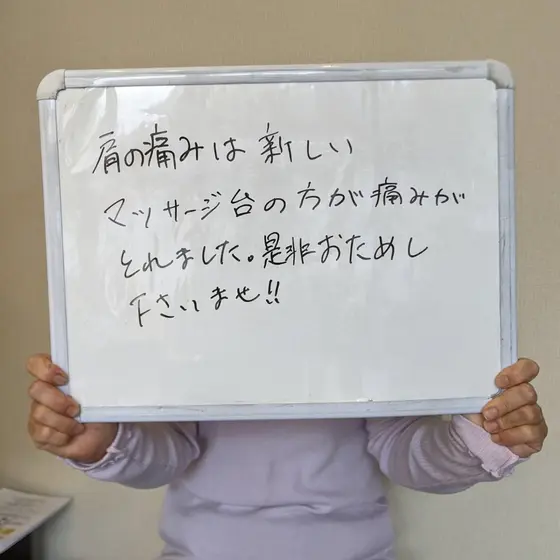 肩の痛みは新しい
マッサージ台の方が痛みが
とれました。是非おためし
下さいませ!!